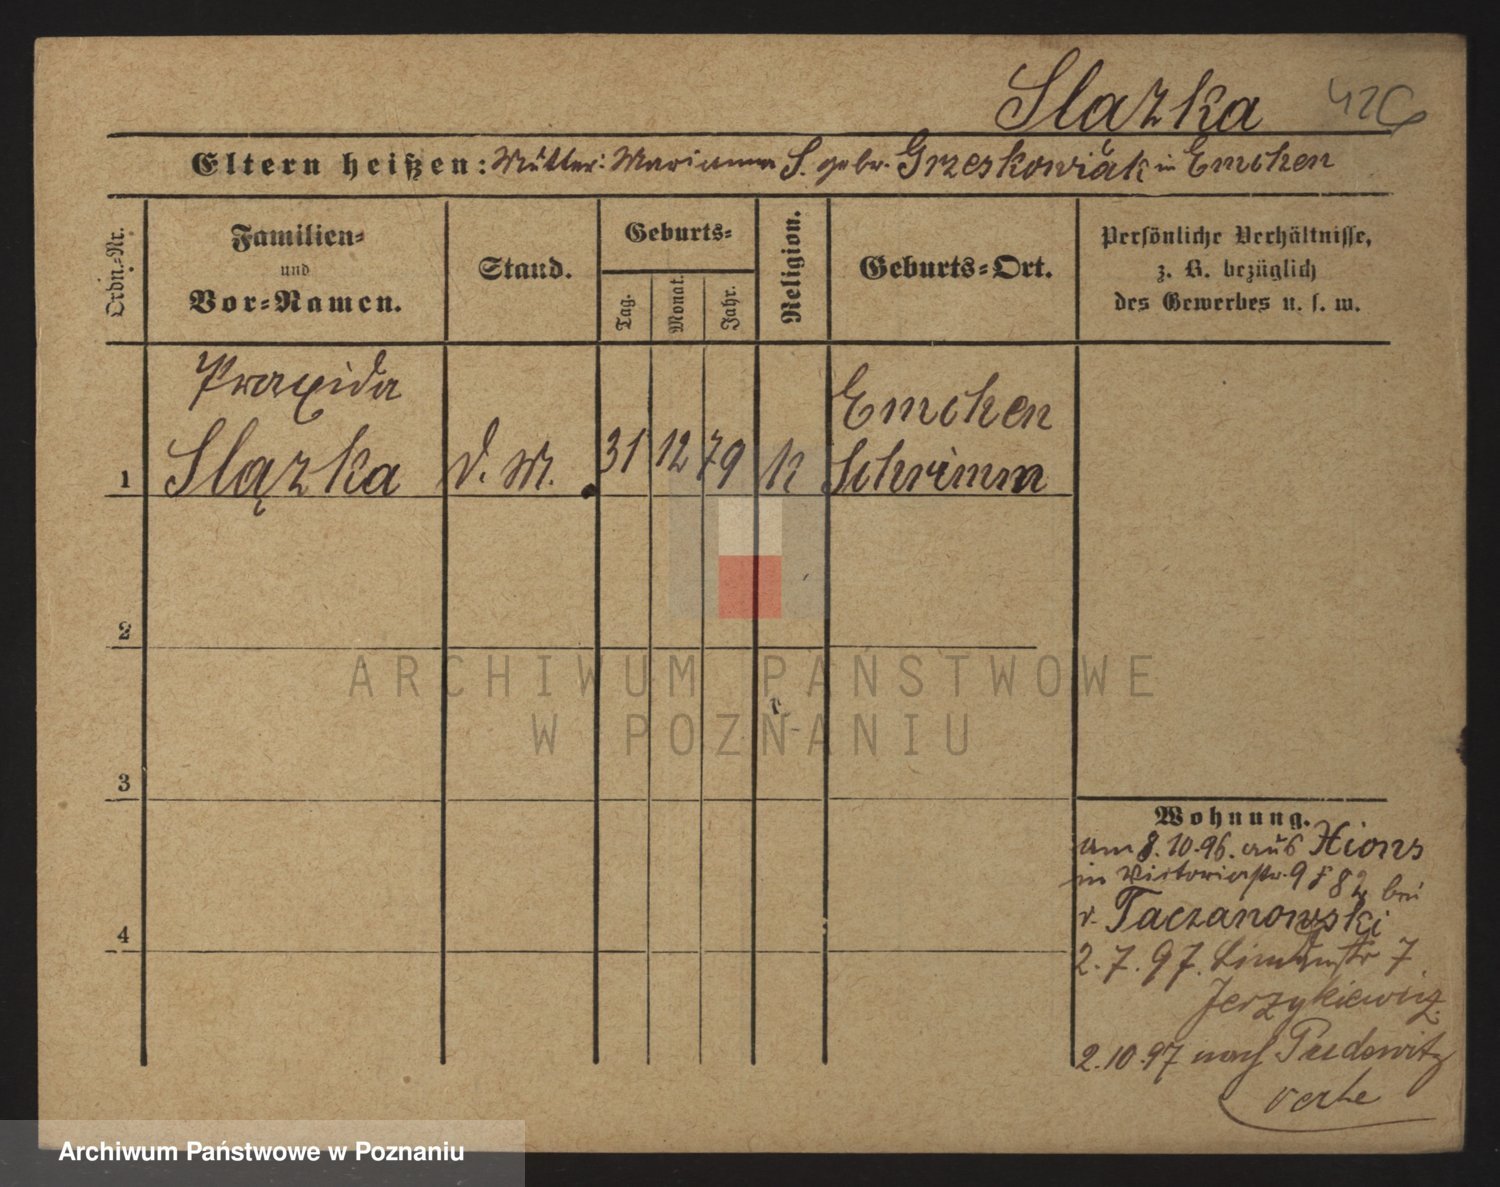 Slązka 426
Eltern heißen: Mutter: Marianna S. gebr. Grzeskowiak in Emchen
Ordn.-Nr.
Familien-
und
Vor-Namen.
Stand.
Geburts-
Tag.
Monat.
Jahr.
Religion.
Geburts-Ort.
Persönliche Verhältnisse,
z. B. bezüglich
des Gewerbes u. s. w.
Praxida Emchen
1 Slązka d. M. 31 12 79 K Schrimm
2
3
4
Wohnung.
am 8.10.96. aus Xions
in Victoriastr. 9 bei
v. Taczanowski
2.7.97. 7
Jerzykiewicz
2.10.97 nach Pudewitz
ARCHIWUM PAŃSTWOWE
W POZNANIU
Archiwum Państwowe w Poznaniu